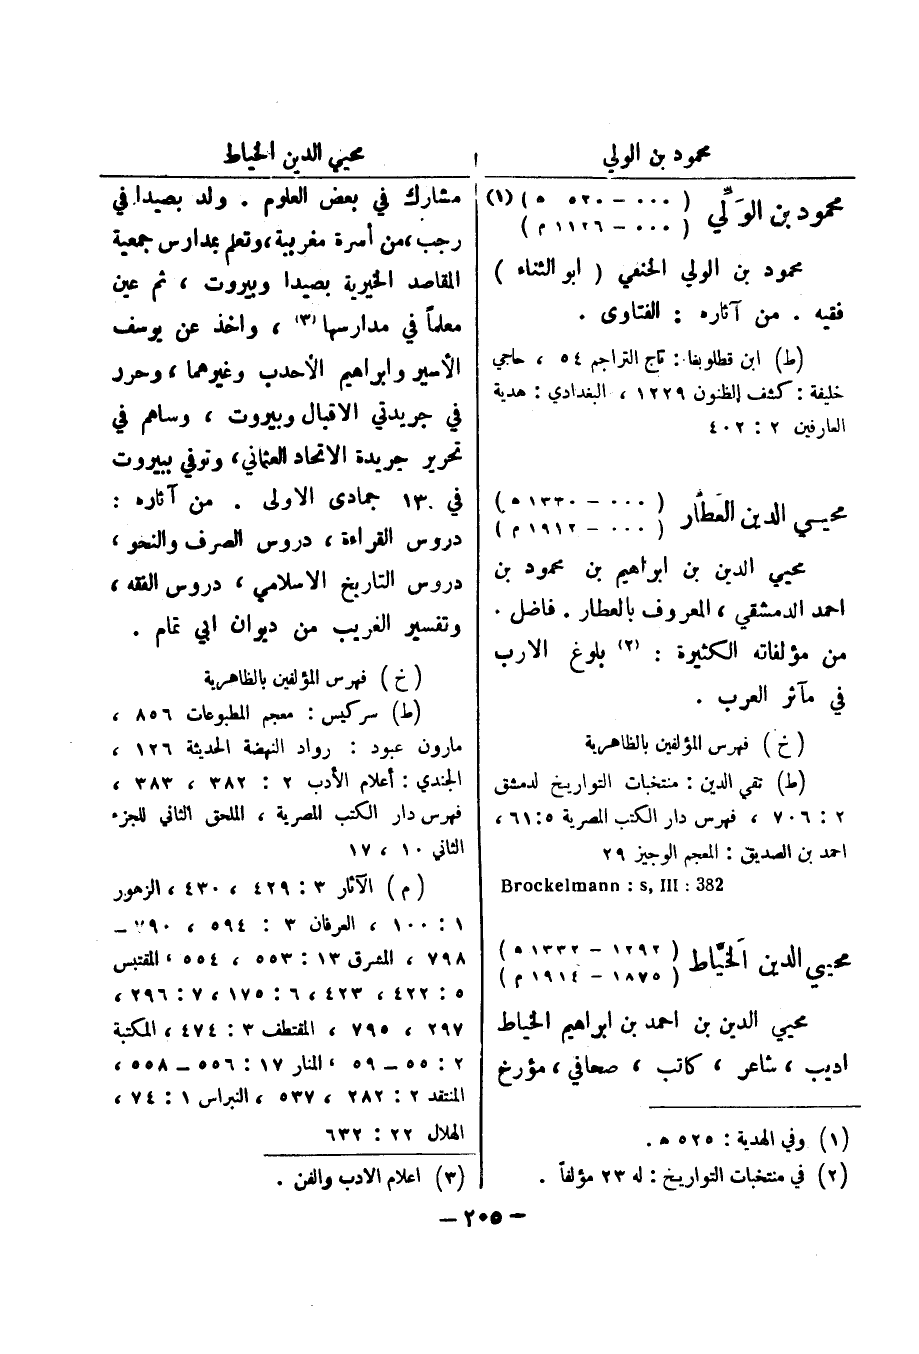 محمود بن الولي
محيي الدين الخياط
محمود بن الوَلّي ( ٠٠٠ – ٥٢٠ ه ) (١)
( ٠٠٠ – ١١٢٦ م )
محمود بن الولي الحنفي ( ابو الثناء )
فقيه . من آثاره : الفتاوى .
(ط) ابن قطلوبغا : تاج التراجم ٥٤ ، حاجي
خليفة : كشف الظنون ١٢٢٩ ، البغدادي : هدية
العارفين ٢ : ٤٠٢
محيي الدين العَطَّار ( ٠٠٠ – ١٣٣٠ ه )
( ٠٠٠ – ١٩١٢ م )
محيي الدين بن ابراهيم بن محمود بن
احمد الدمشقي ، المعروف بالعطار . فاضل .
من مؤلفاته الكثيرة : (٢) بلوغ الارب
في مآثر العرب .
(خ) فهرس المؤلفين بالظاهرية
(ط) تقي الدين : منتخبات التواريخ لدمشق
٢ : ٧٠٦ ، فهرس دار الكتب المصرية ٥ : ٦١ ،
احمد بن الصديق : المعجم الوجيز ٢٩
Brockelmann : s, III : 382
محيي الدين الخَيَّاط ( ١٢٩٢ – ١٣٣٢ ه )
( ١٨٧٥ – ١٩١٤ م )
محيي الدين بن احمد بن ابراهيم الخياط
اديب ، شاعر ، كاتب ، صحافي ، مؤرخ
(١) وفي الهدية : ٥٢٥ هـ .
(٢) في منتخبات التواريخ : له ٢٣ مؤلفاً .
مشارك في بعض العلوم . ولد بصيدا في
رجب ، من أسرة مغربية ، وتعلم بمدارس جمعية
المقاصد الخيرية بصيدا وبيروت ، ثم عين
معلماً في مدارسها (٣) ، واخذ عن يوسف
الأسير وابراهيم الأحدب وغيرهما ، وحرر
في جريدتي الاقبال وبيروت ، وساهم في
تحرير جريدة الاتحاد العثماني ، وتوفي ببيروت
في ١٣ جمادى الاولى . من آثاره :
دروس القراءة ، دروس الصرف والنحو ،
دروس التاريخ الاسلامي ، دروس الفقه ،
وتفسير الغريب من ديوان ابي تمام .
(خ) فهرس المؤلفين بالظاهرية
(ط) سركيس : معجم المطبوعات ٨٥٦ ،
مارون عبود : رواد النهضة الحديثة ١٢٦ ،
الجندي : أعلام الأدب ٢ : ٣٨٢ ، ٣٨٣ ،
فهرس دار الكتب المصرية ، الملحق الثاني للجزء
الثاني ١٠ ، ١٧
(م) الآثار ٣ : ٤٢٩ ، ٤٣٠ ، الزهور
١ : ١٠٠ ، العرفان ٣ : ٥٩٤ ، ٧٩٠ –
٧٩٨ ، المشرق ١٣ : ٥٥٣ ، ٥٥٤ ، المقتبس
٥ : ٤٢٢ ، ٤٢٣ ، ٦ : ١٧٥ ، ٧ : ٢٩٦ ،
٢٩٧ ، ٧٩٥ ، المقتطف ٣ : ٤٧٤ ، المكتبة
٢ : ٥٥ – ٥٩ ، المنار ١٧ : ٥٥٦ – ٥٥٨ ،
المنتقد ٢ : ٢٨٢ ، ٥٣٧ ، النبراس ١ : ٧٤ ،
الهلال ٢٢ : ٦٣٢
(٣) اعلام الادب والفن .
– ٢٠٥ –